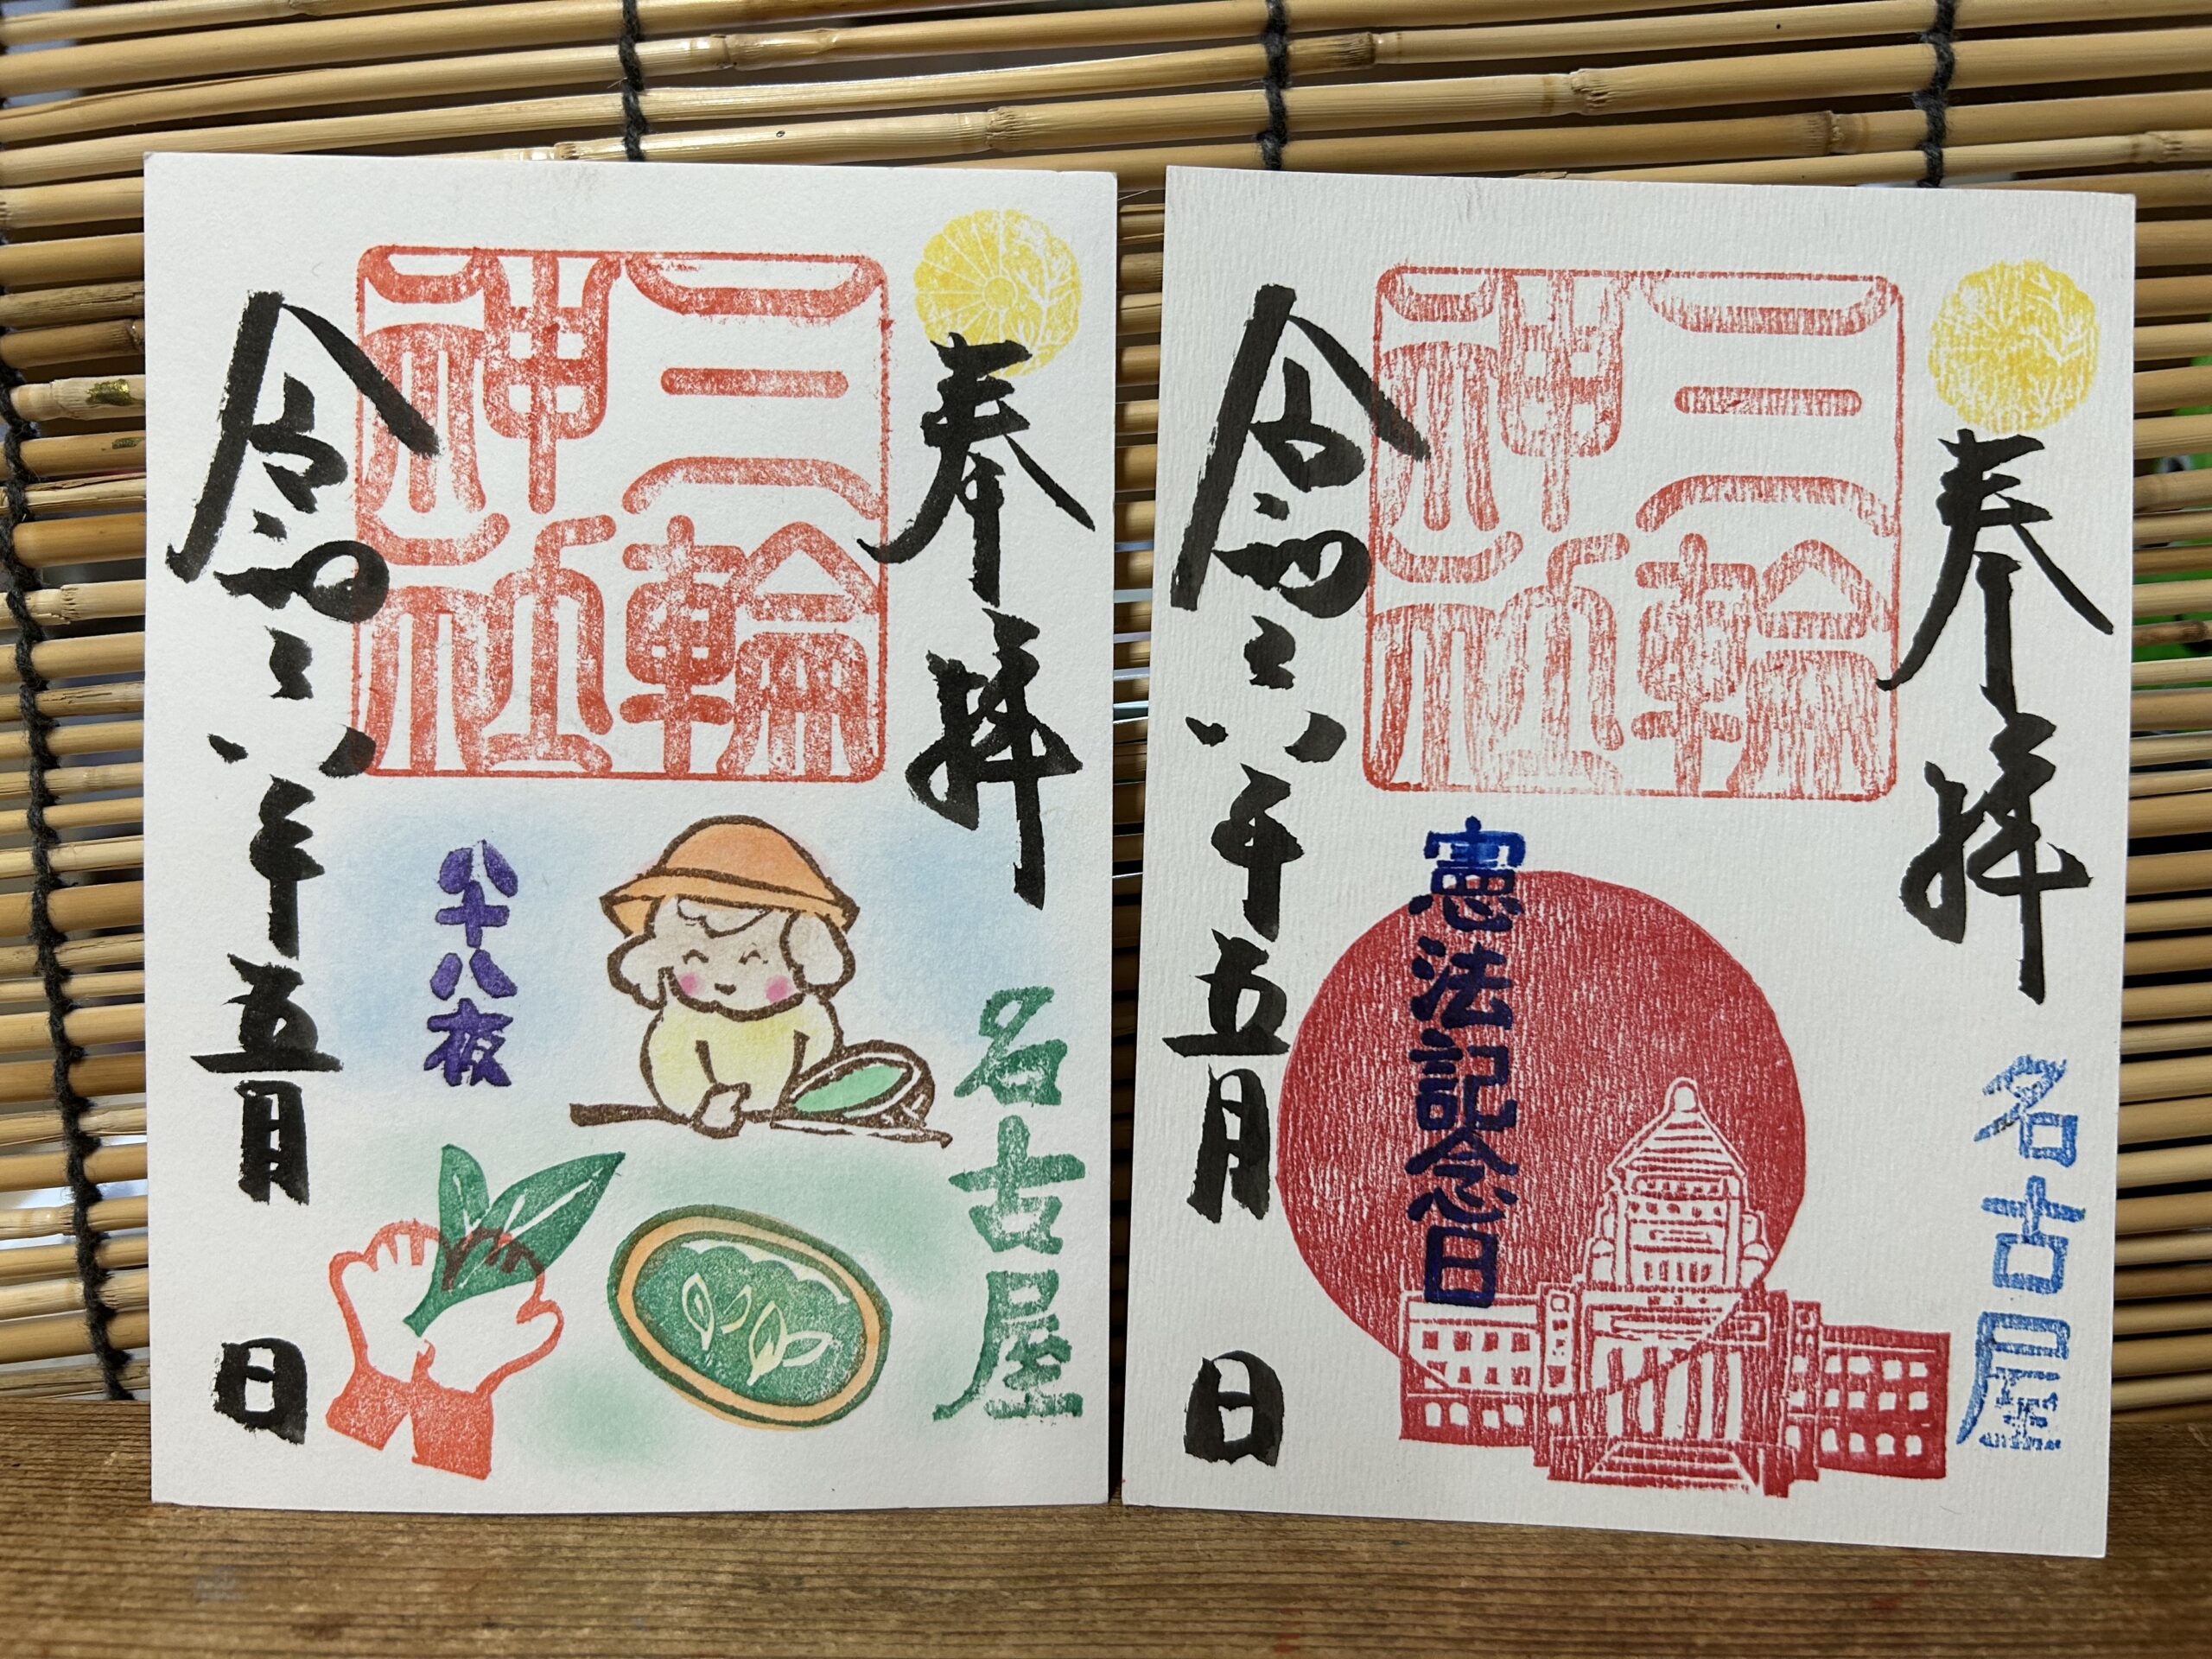 奉拝
名古屋
三輪
神社
八十八夜
令和六年五月 日
奉拝
名古屋
三輪
神社
憲法記念日
令和六年五月 日